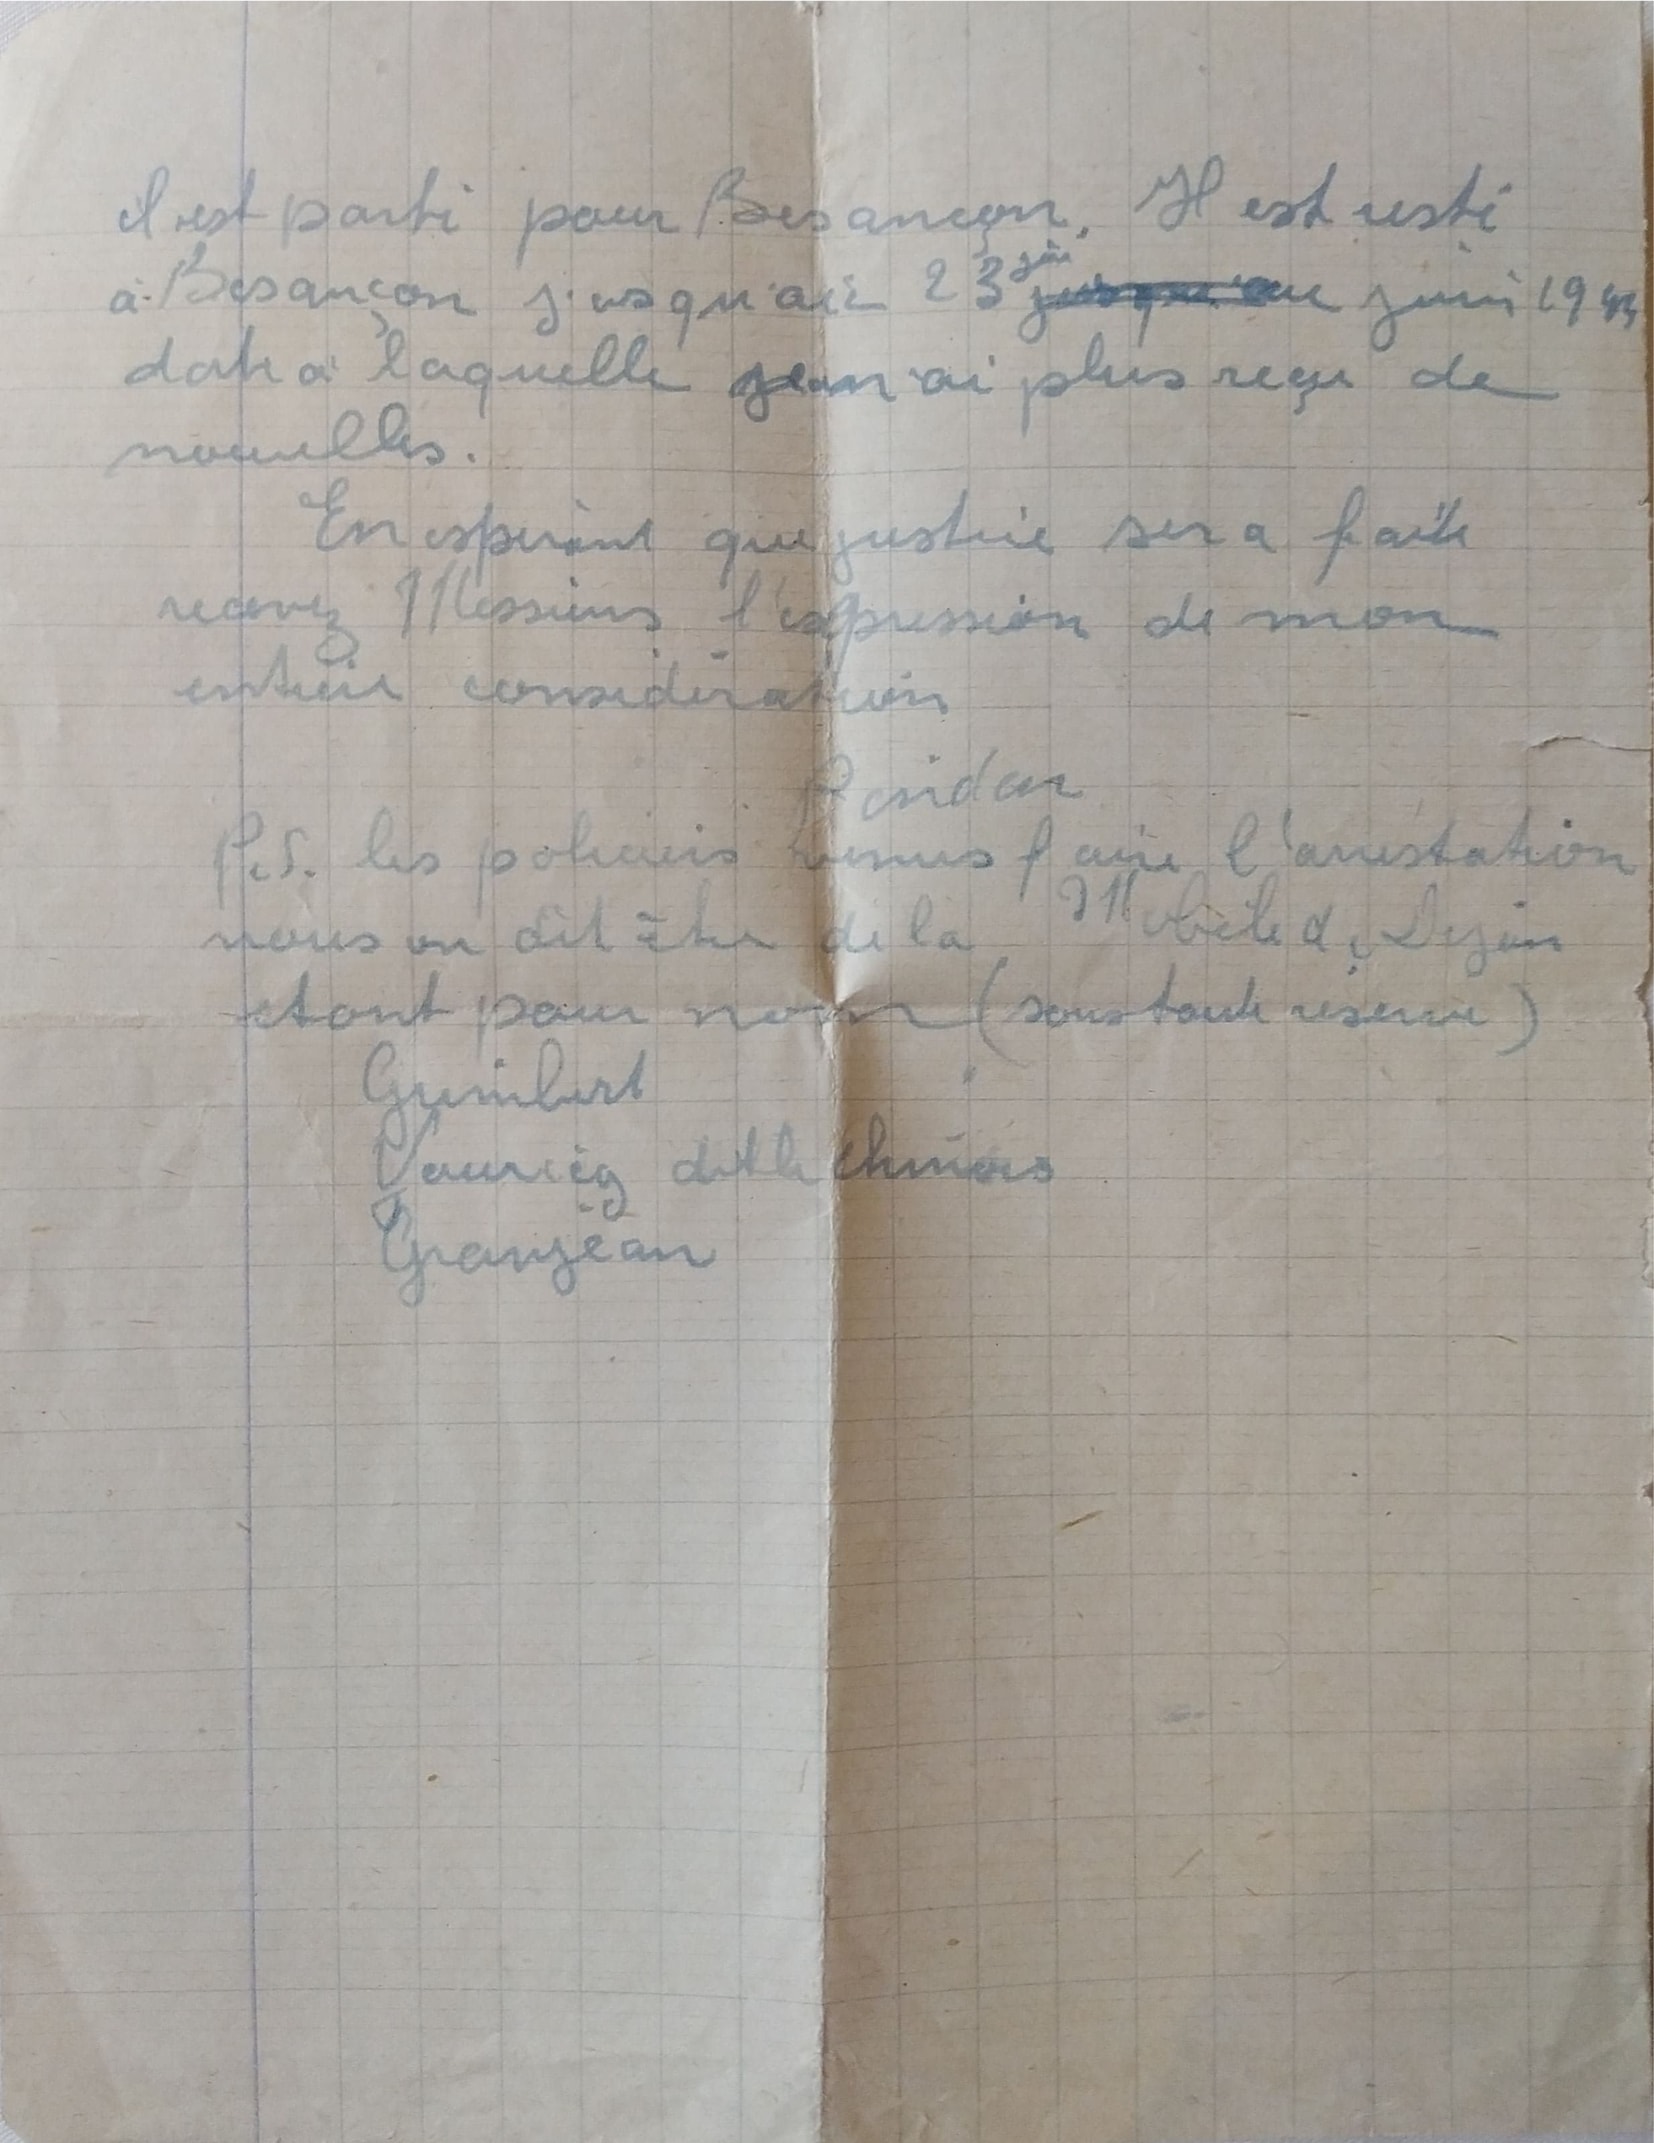 il est parti pour Besançon. Il est resté
à Besançon jusqu'au 23 juin 1943
date à laquelle je n'ai plus reçu de
nouvelles.
En espérant que justice sera faite
recevez Messieurs l'expression de mon
entière considération
P.S. les policiers venus faire l'arrestation
nous on dit être de la Mobile de Dijon
etant pour nom (sous toute réserve)
dit le chinois
Granjean